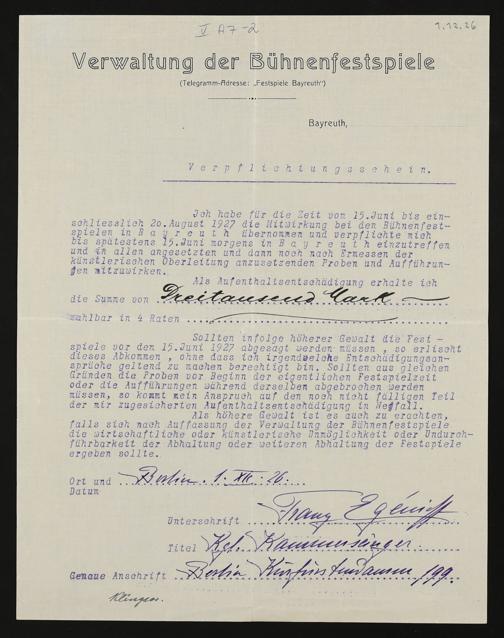 V A7-2
1.12.26
Verwaltung der Bühnenfestspiele
(Telegramm-Adresse: „Festspiele Bayreuth")
Bayreuth,
Verpflichtungsschein.
Ich habe für die Zeit vom 15.Juni bis ein-
schliesslich 20.August 1927 die Mitwirkung bei den Bühnenfest-
spielen in Bayreuth übernommen und verpflichte mich
bis spätestens 15.Juni morgens in Bayreuth einzutreffen
und in allen angesetzten und dann noch nach Ermessen der
künstlerischen Oberleitung anzusetzenden Proben und Aufführun-
gen mitzuwirken.
Als Aufenthaltsentschädigung erhalte ich
die Summe von Dreitausend Mark
zahlbar in 4 Raten
Sollten infolge höherer Gewalt die Fest-
spiele vor den 15.Juni 1927 abgesagt werden müssen, so erlischt
dieses Abkommen, ohne dass ich irgendwelche Entschädigungsan-
sprüche geltend zu machen berechtigt bin. Sollten aus gleichen
Gründen die Proben vor Beginn der eigentlichen Festspielzeit
oder die Aufführungen während derselben abgebrochen werden
müssen, so kommt mein Anspruch auf den noch nicht fälligen Teil
der mir zugesicherten Aufenthaltsentschädigung in Wegfall.
Als höhere Gewalt ist es auch zu erachten,
falls sich nach Auffassung der Verwaltung der Bühnenfestspiele
die wirtschaftliche oder künstlerische Unmöglichkeit oder Undurch-
führbarkeit der Abhaltung oder weiteren Abhaltung der Festspiele
ergeben sollte.
Ort und Berlin. 1. XII. 26.
Datum
Unterschrift Franz Egénieff
Titel Kgl. Kammersänger.
Genaue Anschrift Berlin Kurfürstendamm 199.
Klingsor.